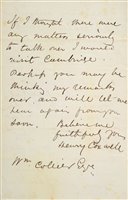 If I thought there were
any matters seriously
to talk over I would
visit Cambridge.
Perhaps you may be
thinking my remarks
over and will let me
hear again from you
soon. Believe me
faithfully yours
Henry Coxwell
Wm Collier Esqe